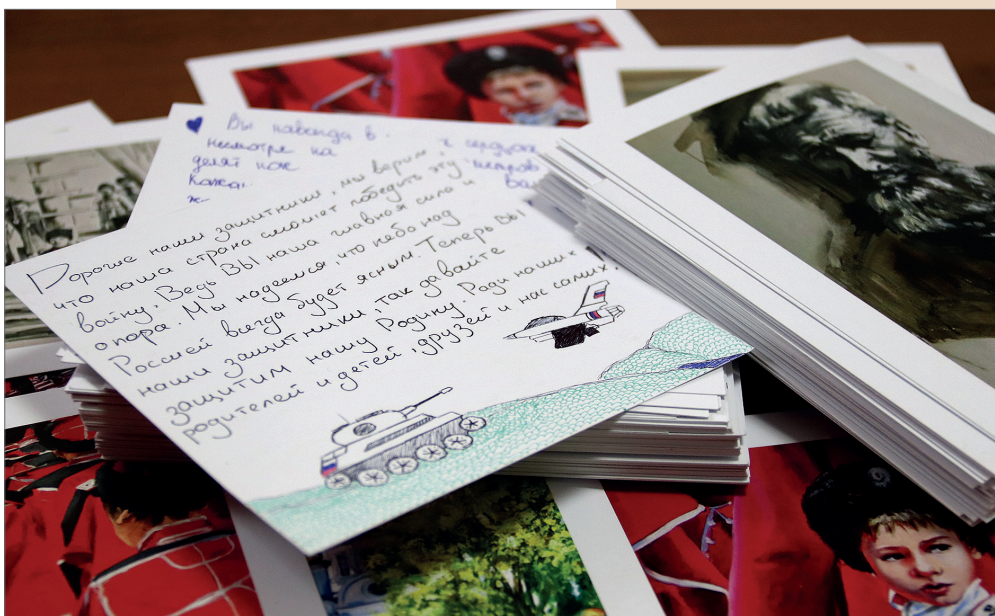 Вы навсегда в
несмотря на
делят нож
Дорогие наши защитники, мы верим,
что наша страна сможет победить эту
войну! Ведь ВЫ наша главная сила и
опора. Мы надеемся, что небо над
Россией всегда будет ясным. Теперь ВЫ
наши защитники, так давайте
защитим нашу Родину! Ради наших
родителей и детей, друзей и нас самих!